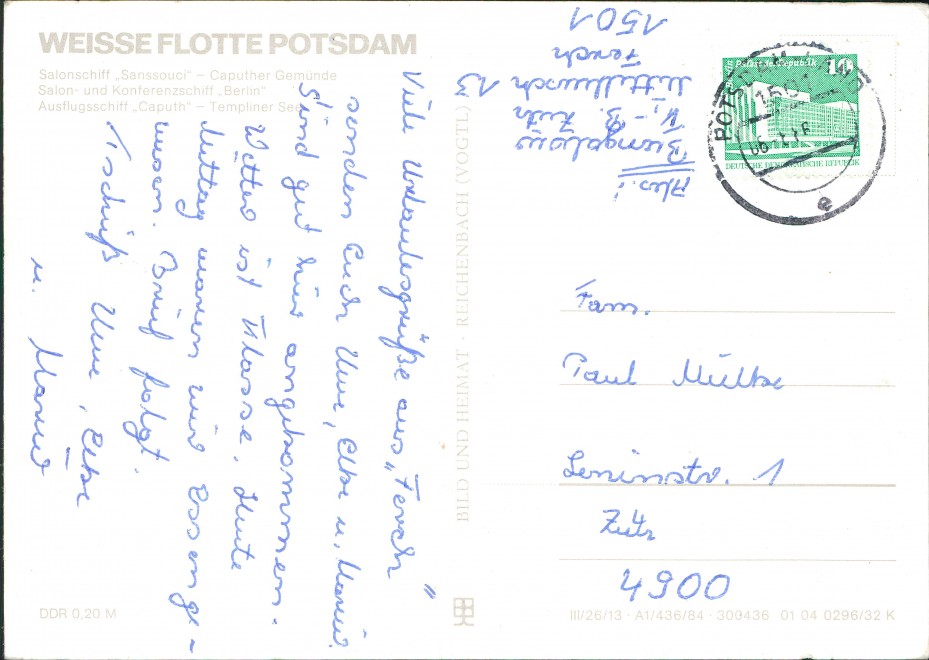 WEISSE FLOTTE POTSDAM
Salonschiff „Sanssouci" – Caputher Gemünde
Salon- und Konferenzschiff „Berlin"
Ausflugsschiff „Caputh" – Templiner See
Viele Urlaubsgrüße aus „Ferch"
senden Euch Uwe, Elke u. Mario.
Sind gut hier angekommen.
Wetter ist Klasse. Heute
Mittag waren wir Essen ge-
wesen. Brief folgt.
Tschüß Uwe, Elke
u. Mario
Abs.:
Bungalow
13
Ferch
1501
BILD UND HEIMAT · REICHENBACH (VOGTL)
Palast der Republik 10
DEUTSCHE DEMOKRATISCHE REPUBLIK
POTSDAM
e
Fam.
Paul Mültze
Leninstr. 1
Zeitz
4900
DDR 0,20 M
III/26/13 · A1/436/84 · 309436 01 04 0296/32 K